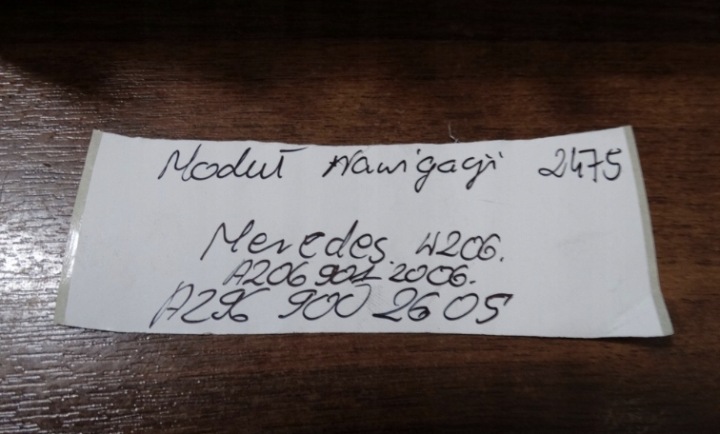 Moduł Nawigacji 2475
Meredes. W206.
A206 901 2006.
A296 900 2605